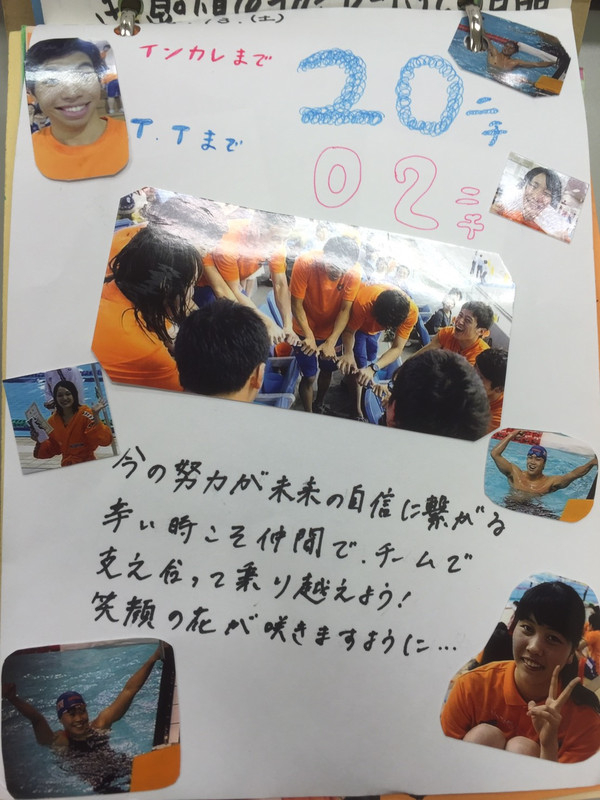 (土)
インカレまで
20ニチ
T.Tまで
02ニチ
今の努力が未来の自信に繋がる
辛い時こそ仲間で、チームで
支え合って乗り越えよう!
笑顔の花が咲きますように…